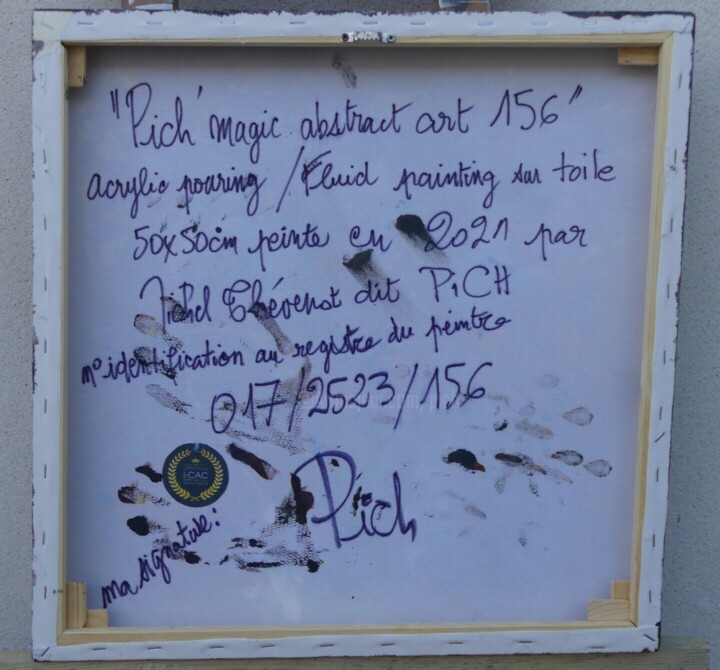 "Pich' magic abstract art 156"
acrylic pouring / Fluid painting sur toile
50x50cm peinte en 2021 par
Michel Thévenot dit PiCH
n° identification au registre du peintre
017/2523/156
i-CAC
ma signature:
Pich